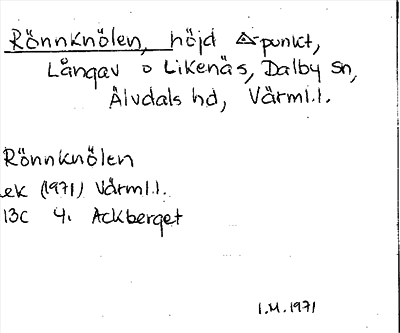 Rönnknölen, höjd △punkt,
Långav o Likenäs, Dalby sn,
Älvdals hd, Värml.l.
Rönnknölen
ek (1971) Värml.l.
13C 4. Ackberget
I.M. 1971